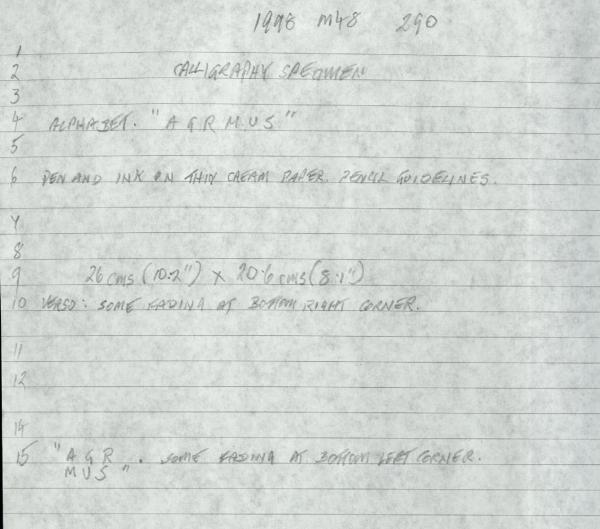 1998 M48 290
1
2 CALLIGRAPHY SPECIMEN
3
4 ALPHABET. "A G R M U S"
5
6 PEN AND INK ON THIN CREAM PAPER. PENCIL GUIDELINES.
7
8
9 26 cms (10.2") x 20.6 cms (8.1")
10 VERSO: SOME FADING AT BOTTOM RIGHT CORNER.
11
12
14
15 "A G R . SOME FADING AT BOTTOM LEFT CORNER.
M U S"